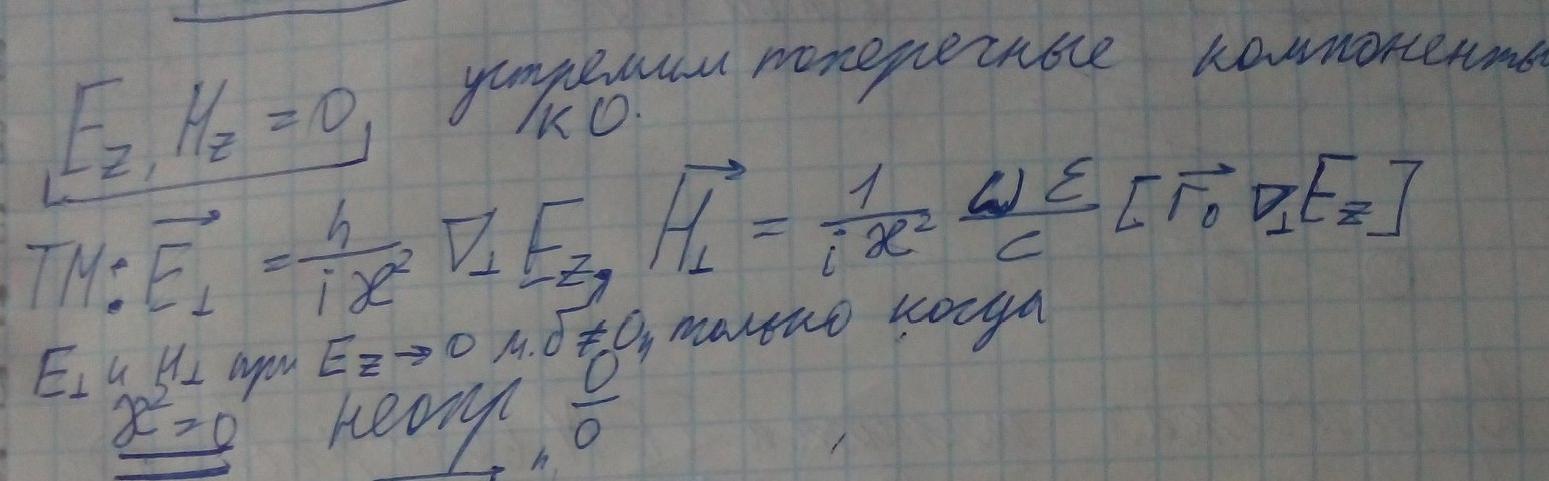 устремим поперечные компоненты
E_z, H_z = 0, к 0.
TM: \vec{E}_⊥ = \frac{h}{iæ^2} ∇_⊥ E_z, \vec{H}_⊥ = \frac{1}{iæ^2} \frac{ωε}{c} [\vec{r}_0 ∇_⊥ E_z]
E_⊥ и H_⊥ при E_z → 0 м.б ≠ 0, только когда
æ^2 = 0 неопр \frac{0}{0}